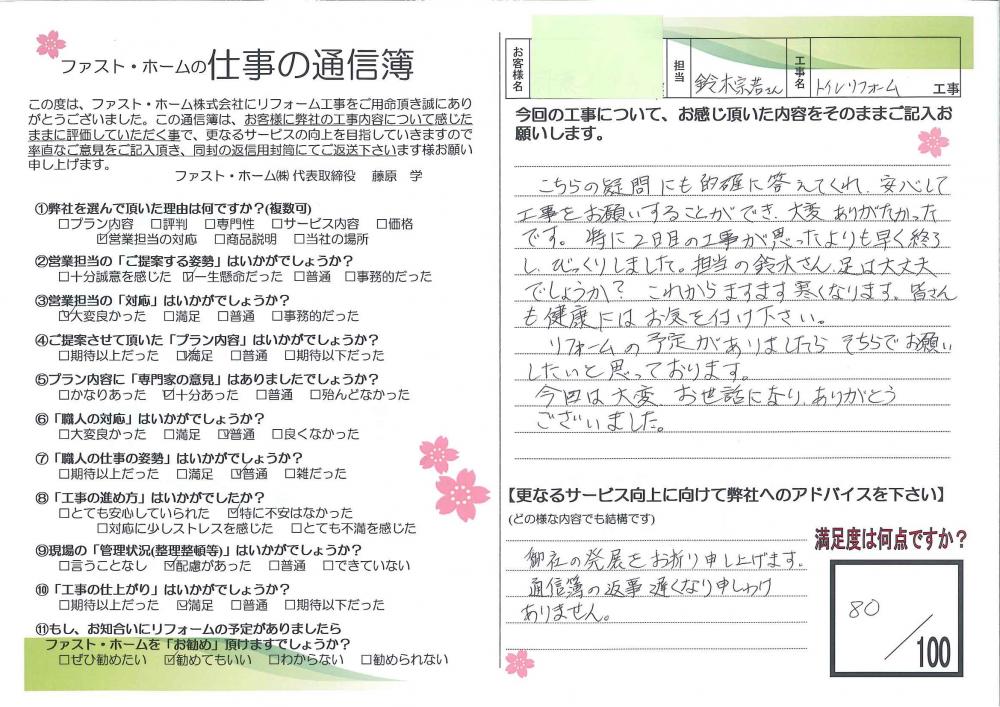 ファスト・ホームの仕事の通信簿
この度は、ファスト・ホーム株式会社にリフォーム工事をご用命頂き誠にあり
がとうございました。この通信簿は、お客様に弊社の工事内容について感じた
ままに評価していただく事で、更なるサービスの向上を目指していきますので
率直なご意見をご記入頂き、同封の返信用封筒にてご返送下さいます様お願い
申し上げます。
ファスト・ホーム㈱ 代表取締役 藤原 学
①弊社を選んで頂いた理由は何ですか?(複数可)
□プラン内容 □評判 □専門性 □サービス内容 □価格
☑営業担当の対応 □商品説明 □当社の場所
②営業担当の「ご提案する姿勢」はいかがでしょうか?
□十分誠意を感じた ☑一生懸命だった □普通 □事務的だった
③営業担当の「対応」はいかがでしょうか?
☑大変良かった □満足 □普通 □事務的だった
④ご提案させて頂いた「プラン内容」はいかがでしょうか?
□期待以上だった ☑満足 □普通 □期待以下だった
⑤プラン内容に「専門家の意見」はありましたでしょうか?
□かなりあった ☑十分あった □普通 □殆んどなかった
⑥「職人の対応」はいかがでしょうか?
□大変良かった □満足 ☑普通 □良くなかった
⑦「職人の仕事の姿勢」はいかがでしょうか?
□期待以上だった □満足 ☑普通 □雑だった
⑧「工事の進め方」はいかがでしたか?
□とても安心していられた ☑特に不安はなかった
□対応に少しストレスを感じた □とても不満を感じた
⑨現場の「管理状況(整理整頓等)」はいかがでしょうか?
□言うことなし ☑配慮があった □普通 □できていない
⑩「工事の仕上がり」はいかがでしょうか?
□期待以上だった ☑満足 □普通 □期待以下だった
⑪もし、お知合いにリフォームの予定がありましたら
ファスト・ホームを「お勧め」頂けますでしょうか?
□ぜひ勧めたい ☑勧めてもいい □わからない □勧められない
お客様名
担当 鈴木宗若さん
工事名 トイレリフォーム 工事
今回の工事について、お感じ頂いた内容をそのままご記入お
願いします。
こちらの疑問にも的確に答えてくれ、安心して
工事をお願いすることができ、大変ありがたかった
です。特に2日目の工事が思ったよりも早く終了
し、びっくりしました。担当の鈴木さん、足は大丈夫
でしょうか? これからますます寒くなります。皆さん
も健康にはお気を付け下さい。
リフォームの予定がありましたらそちらでお願い
したいと思っております。
今回は大変、お世話になり、ありがとう
ございました。
【更なるサービス向上に向けて弊社へのアドバイスを下さい】
(どの様な内容でも結構です)
御社の発展をお祈り申し上げます。
通信簿の返事遅くなり申しわけ
ありません。
満足度は何点ですか?
80
/100